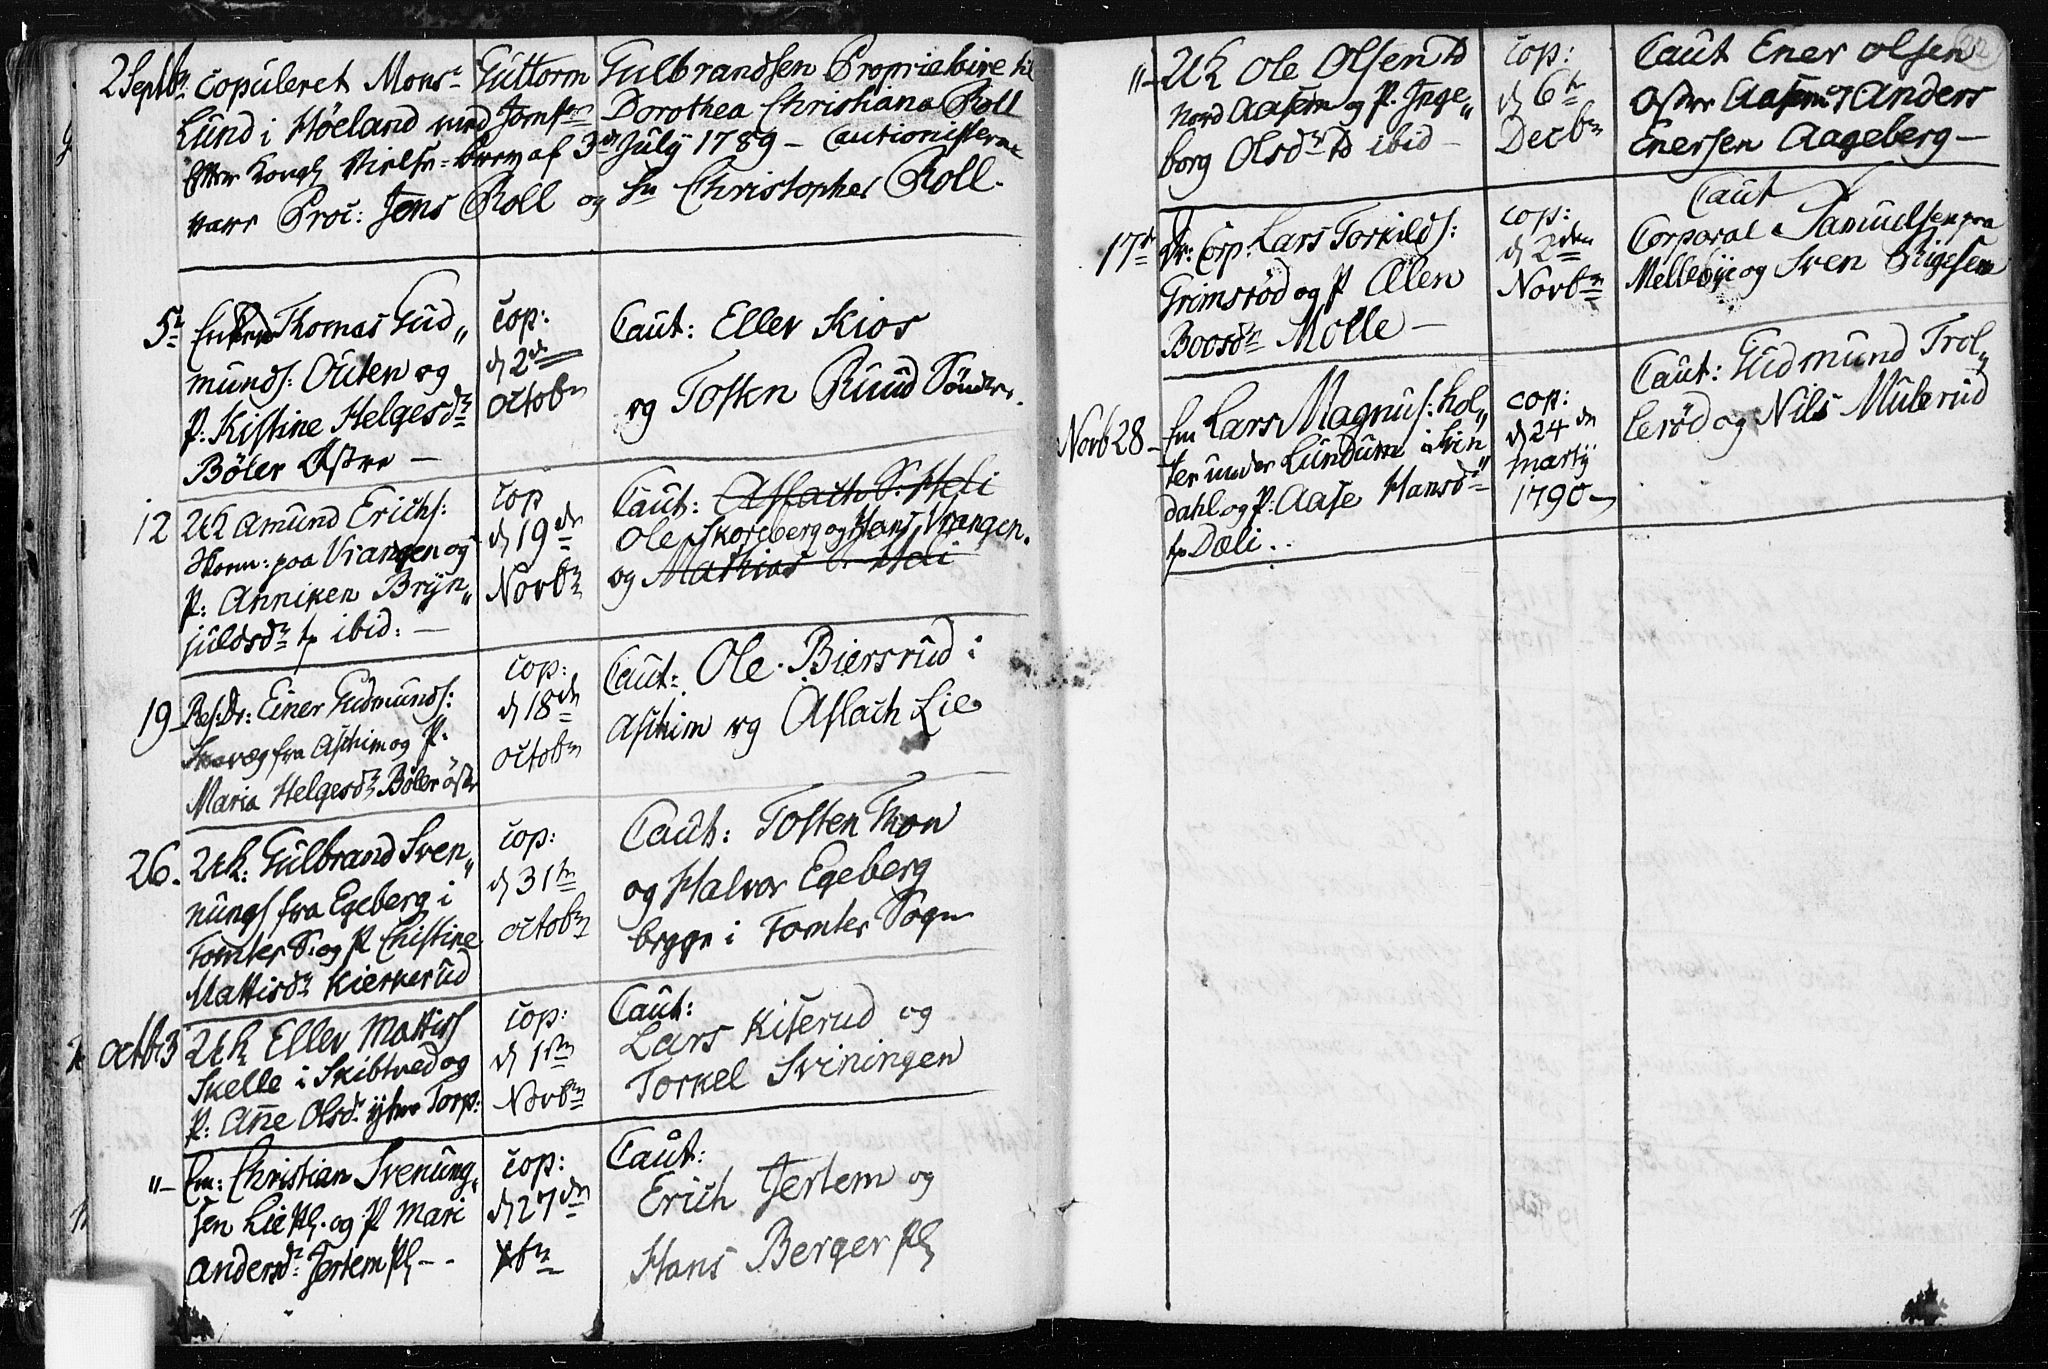 2 Septbr copuleret Monsr Guttorm Gulbrandsen Proprietaire til
Lund i Höeland med Jomfr Dorothea Christiana Roll
Efter Kongl Vielse-Brev af 3d July 1789 – Cautionisterne
vare Proc: Jens Roll og Sr Christopher Roll.
5t Enkem Thomas Gud„
munds: Outen og
P: Kistine Helgesdr
Böler Östre —
cop:
d 2den
octobr
Caut: Eller Kios
og Tosten Ruud Söndre.
12 UK Amund Erichs:
paa Vrangen og
P: Anniken Bryn„
juldsdr ibid: —
cop
d 19de
Novbr
Caut: Aslach S: Heli
Ole Skoreberg og Hans Vrangen.
og Mathias Heli
19 Res: Dr: Einer Gudmunds:
Skovæg fra Aschim og P.
Maria Helgesdr Böler östre
cop:
d 18de
octobr
Caut: Ole Biersrud i
Aschim og Aslach Lie
26. UK: Gulbrand Sven„
nungs fra Egeberg i
Tomter S: og P Chistine
Mattisdr Kierkerud
cop:
d 31te
octobr
Caut: Tosten Thon
og Halvor Egeberg
begge i Tomter Sogn
octb 3 UK Eller Mattiss
Skelle i Skibtved og
P: Anne Olsdr ytre Torp:
cop:
d 1ste
Novbr
Caut:
Lars Kiserud og
Torkel Sviningen
„– Em: Christian Svenung„
sen Lie Pl. og P Mari
Andersdr Jertem Pl – -
cop:
d 27de
Xbr
Caut:
Erich Jertem og
Hans Berger Pl
22
„– UK Ole Olsen
Nord Aasem og P. Inge„
borg Olsdr ibid –
cop:
d 6te
Decbr
Caut Ener Olsen
Östre Aasem og Anders
Enersen Aageberg —
17de Dr: Corp: Lars Torkilds:
Grimsröd og P Ælen
Boosdr Molle —
cop:
d 2den
Novbr
Caut
Corporal Samuelsen paa
Mellebye og Sven Rigesen
Novb 28 – Em Lars Magnus: hol„
ter under Lundum i Svin„
dahl og P: Aase Hansdr
Dæli..
cop:
d 24de
martij
1790 –
Caut: Gudmund Trol„
leröd og Nils Mulerud